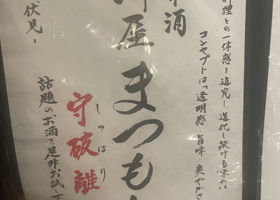 理との一体感を追究し進化し続ける味わい
コンセプトは「透明感・旨味・爽やかさ
酒
屋まつも
しゅはり
守破離
話題のお酒を是非お試し下
伏見